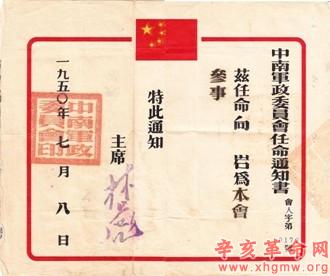 中南軍政委員會任命通知書
會人字第
號
茲任命向 岩為本會
參事
特此通知
主席
林彪
一九五〇年 七 月 八 日
中南軍政委員會印
辛亥革命网
www.xhgmw.org